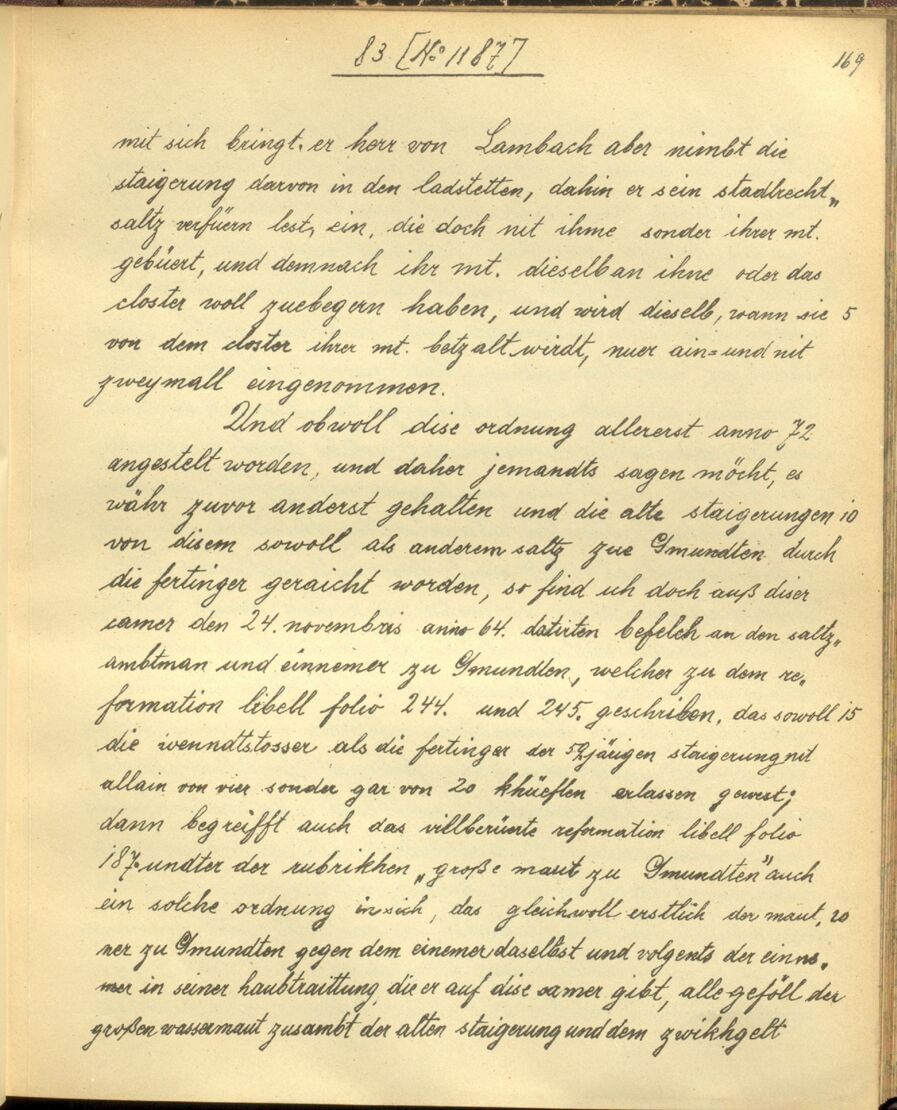 83 [No 1187]
169
mit sich bringt. er herr von Lambach aber nimbt die
staigerung darvon in den ladstetten, dahin er sein stadlrecht„
saltz verfüern lest, ein, die doch nit ihme sonder ihrer mt.
gebüert, und demnach ihr mt. dieselb an ihne oder das
closter woll zuebegern haben, und wird dieselb, wann sie 5
von dem closter ihrer mt. betzalt wirdt, nuer ain= und nit
zweymall eingenommen.
Und obwoll dise ordnung allererst anno 72
angestelt worden, und daher jemandts sagen möcht, es
währ zuvor anderst gehalten und die alte staigerungen 10
von disem sowoll als anderem saltz zue Gmundten durch
die fertinger geraicht worden, so find ich doch auß diser
camer den 24. novembris anno 64. datirten befelch an den saltz„
ambtman und einnemer zu Gmundten, welcher zu dem re„
formation libell folio 244. und 245. geschriben, das sowoll 15
die wenndtstosser als die fertinger der 52järigen staigerung nit
allain von vier sonder gar von 20 khüeflen erlassen gewest;
dann begreifft auch das villberüerte reformation libell folio
187. undter der rubrikhen „große maut zu Gmundten" auch
ein solche ordnung in sich, das gleichwoll erstlich der maut„ 20
ner zu Gmundten gegen dem einemer daselbst und volgents der einne„
mer in seiner haubtraittung, die er auf dise camer gibt, alle geföll der
großen wassermaut zusambt der alten staigerung und dem zwikhgelt